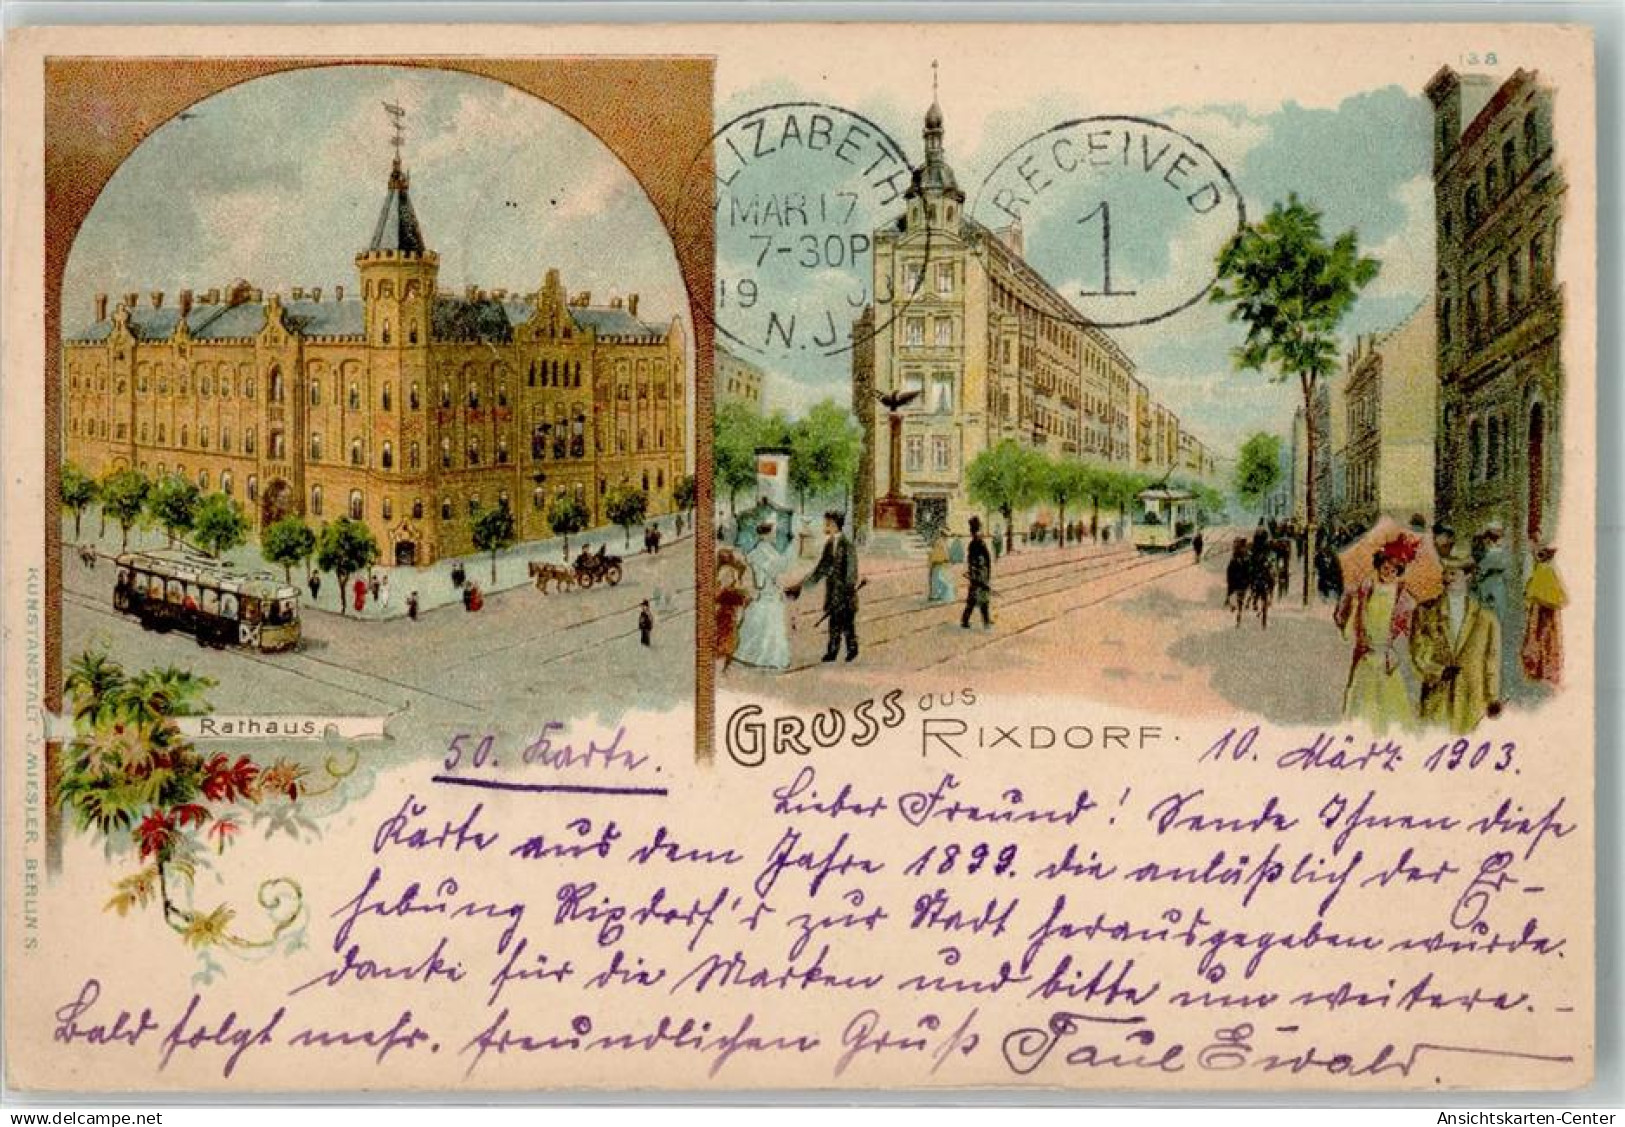 138
ELIZABETH
MAR 17
7-30P
19 03
N.J.
RECEIVED
1
Rathaus.
GRUSS aus
RIXDORF.
KUNSTANSTALT J. MIESLER, BERLIN S.
50. Karte.
10. März 1903.
Lieber Freund! Sende Ihnen diese
Karte aus dem Jahre 1899. die anläßlich der Er-
hebung Rixdorf's zur Stadt herausgegeben wurde.
danke für die Marken und bitte um weitere. –
Bald folgt mehr. freundlichen Gruß Paul Ewald.
delcampe.net
Ansichtskarten-Center